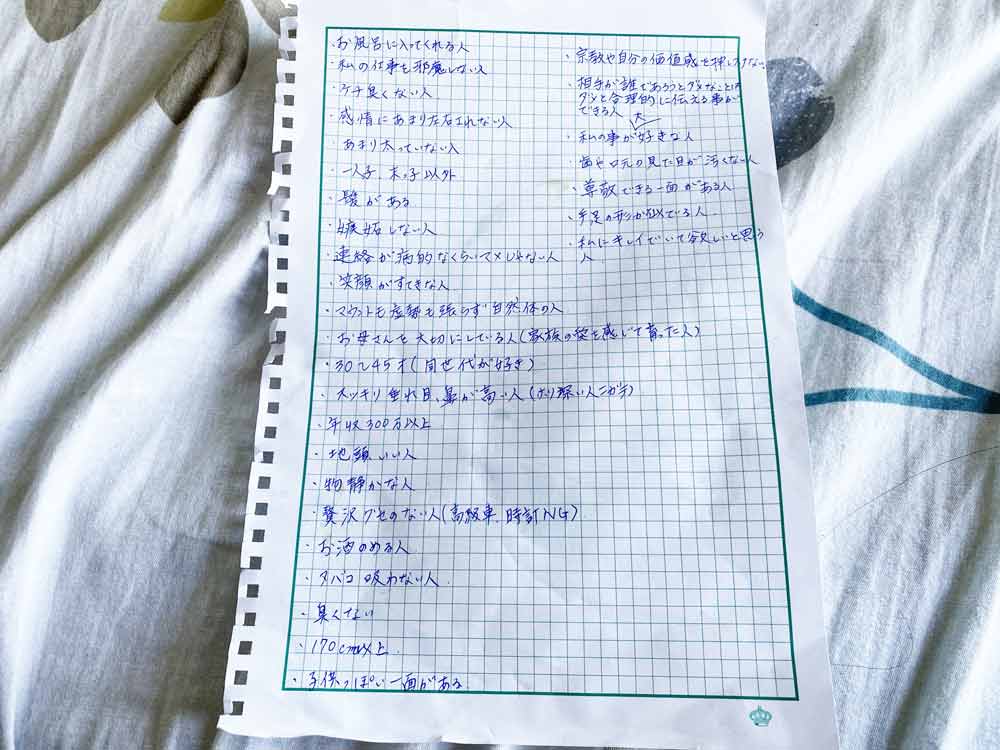 ・お風呂に入ってくれる人
・私の仕事を邪魔しない人
・ケチ臭くない人
・感情にあまり左右されない人
・あまり太っていない人
・一人子、末っ子以外
・髪がある
・嫉妬しない人
・連絡が病的なくらいマメじゃない人
・笑顔がすてきな人
・マウントも虚勢も張らず自然体の人
・お母さんを大切にしている人(家族の愛を感じて育った人)
・30〜45才(同世代が好き)
・スッキリ垂れ目、鼻が高い人(ホリ深い人ニガテ)
・年収300万以上
・地頭いい人
・物静かな人
・贅沢グセのない人(高級車、時計NG)
・お酒のめる人
・タバコ吸わない人
・臭くない
・170cm以上
・子供っぽい一面がある
・宗教や自分の価値感を押しつけない
・相手が誰であろうとダメなことは
ダメと合理的に伝える事が
できる人
・私の事が大好きな人
・歯や口元の見た目が汚くない人
・尊敬できる一面がある人
・手足の形が似ている人
・私にキレイでいて欲しいと思う
人